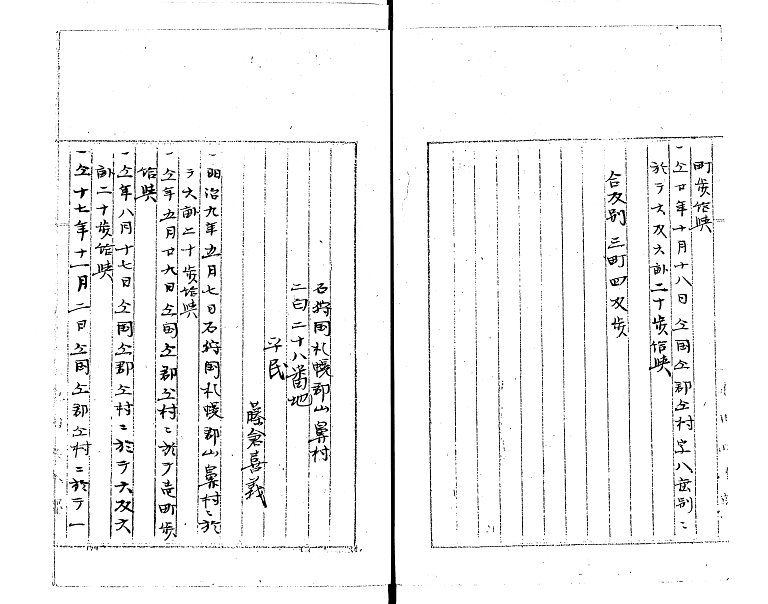 町歩給与
一仝廿年十月十八日仝国仝郡仝村字八垂別ニ
於テ六反六畝二十歩給与
合反別三町四反歩
石狩国札幌郡山鼻村
二百二十八番地
平民
藤倉喜義
一明治九年五月七日石狩国札幌郡山鼻村ニ於
テ六畝二十歩給与
一仝年五月廿九日仝国仝郡仝村ニ於テ壱町歩
給与
一仝年八月十七日仝国仝郡仝村ニ於テ六反六
畝二十歩給与
一仝十七年十一月二日仝国仝郡仝村ニ於テ一